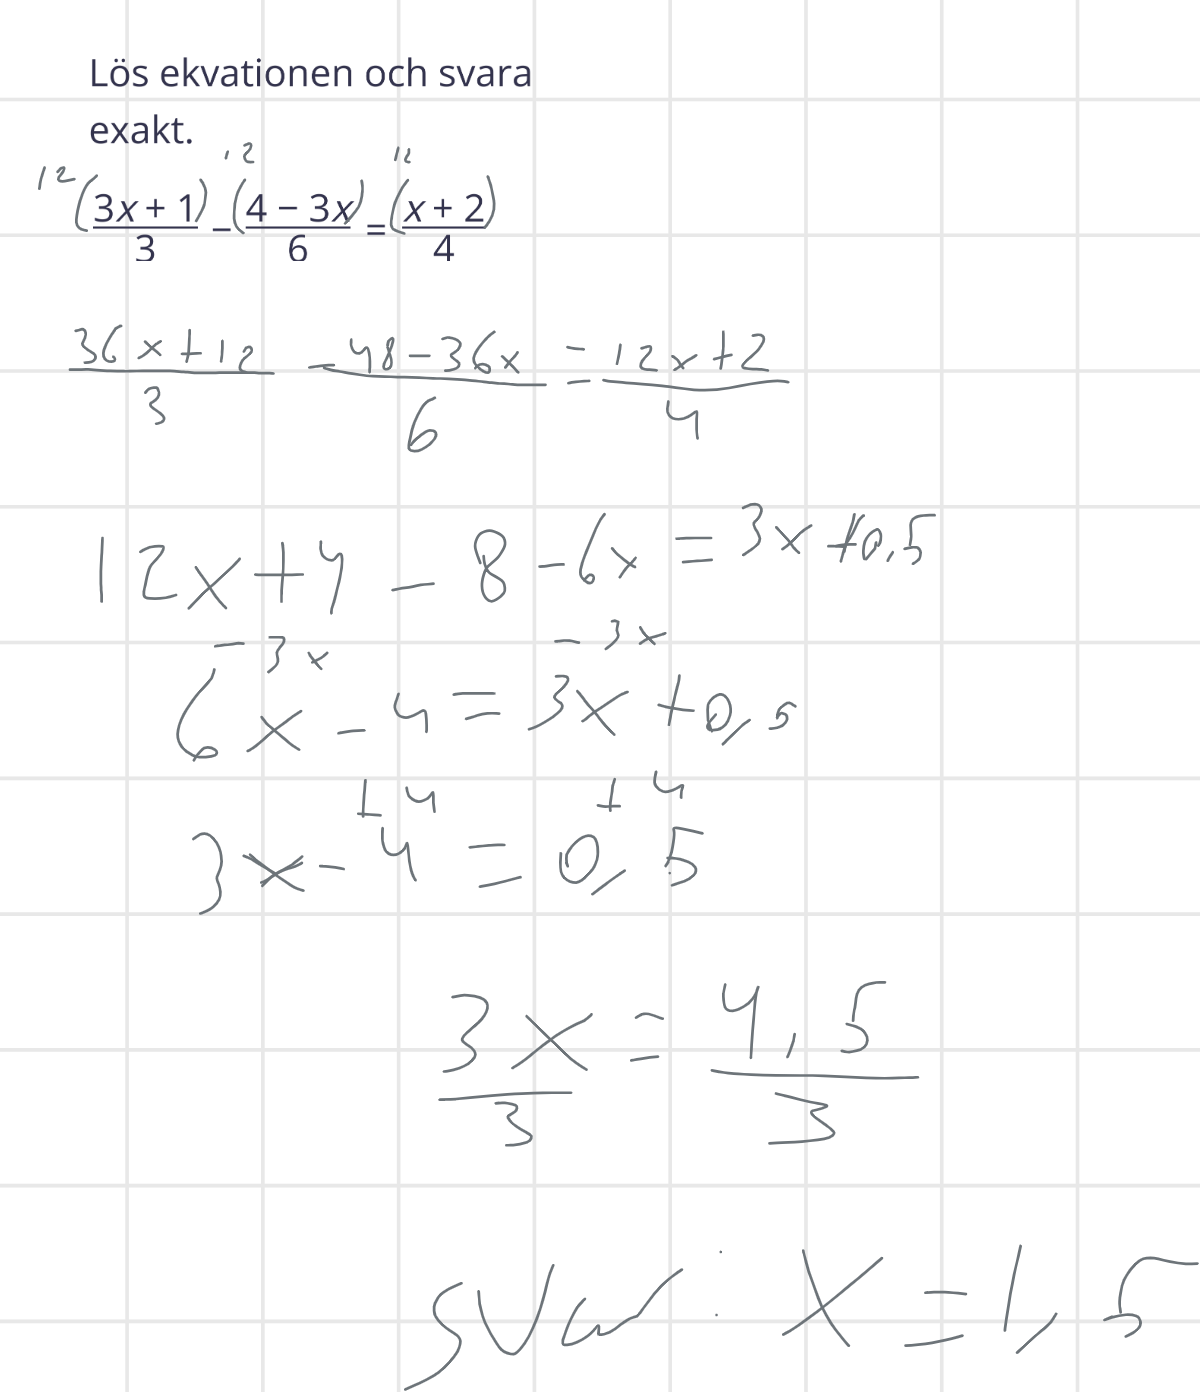 Lös ekvationen och svara
exakt.
12 12 12
(3x + 1)/3 - (4 − 3x)/6 = (x + 2)/4
36x+12/3 - 48-36x/6 = 12x+2/4
12x+4 - 8-6x = 3x+0,5
-3x -3x
6x - 4 = 3x+0,5
+4 +4
3x - 4 = 0,5
3x/3 = 4,5/3
svar: x = 1,5